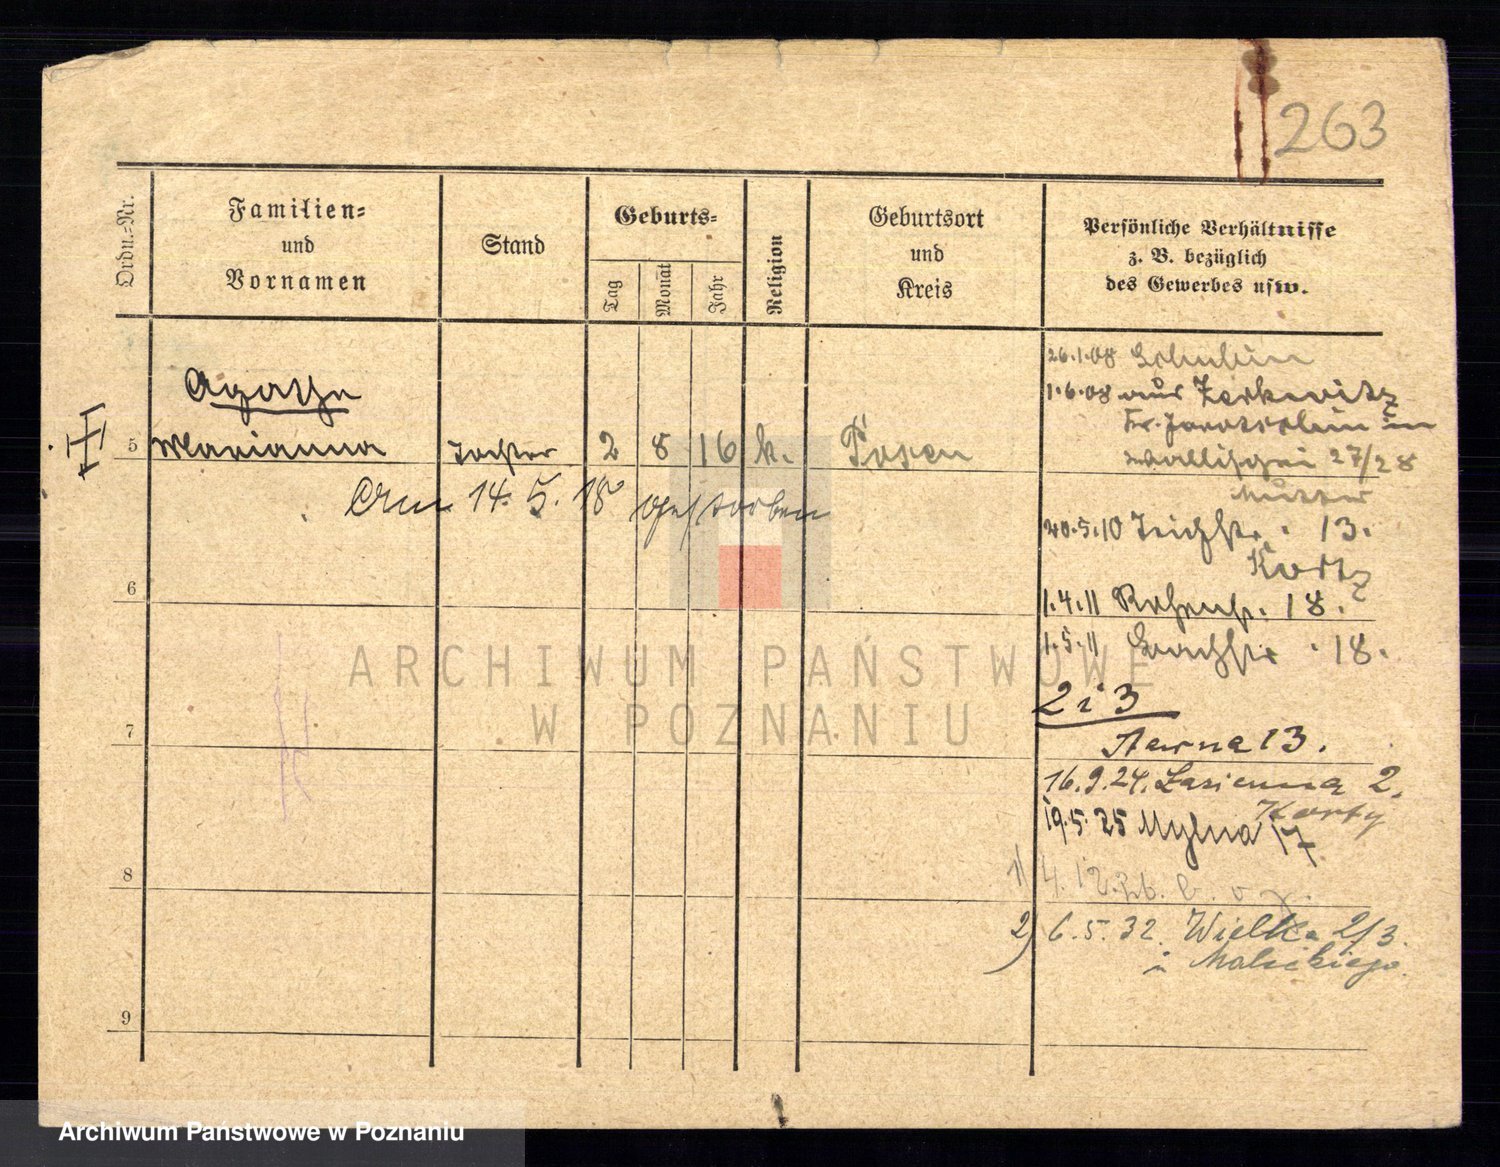 263
Ordn.-Nr.
Familien-
und
Vornamen
Stand
Geburts-
Tag
Monat
Jahr
Religion
Geburtsort
und
Kreis
Persönliche Verhältnisse
z. B. bezüglich
des Gewerbes usw.
26.1.08
Agathe
1.6.08 aus Zerkowitz
Kr. Jarotschin in
5 Marianna Tochter 2 8 16 k. Posen
Wallischei 27/28
Mutter
Am 14. 5. 18 gestorben
20.5.10 Teichstr. 13.
6
1.4.11 18.
1.5.11 18.
ARCHIWUM PAŃSTWOWE
W POZNANIU
2 i 3
7
13.
16.9.24. Łazienna 2.
19.5.25 Mylna 17
8
1) 4.12.
2) 6.5.32. Wielka 2/3.
u Maleckiego.
9
Archiwum Państwowe w Poznaniu